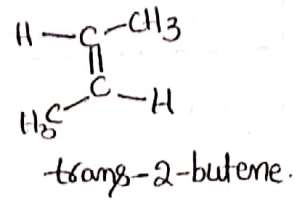 H—C—CH3
||
C—H
H3C
trans-2-butene.